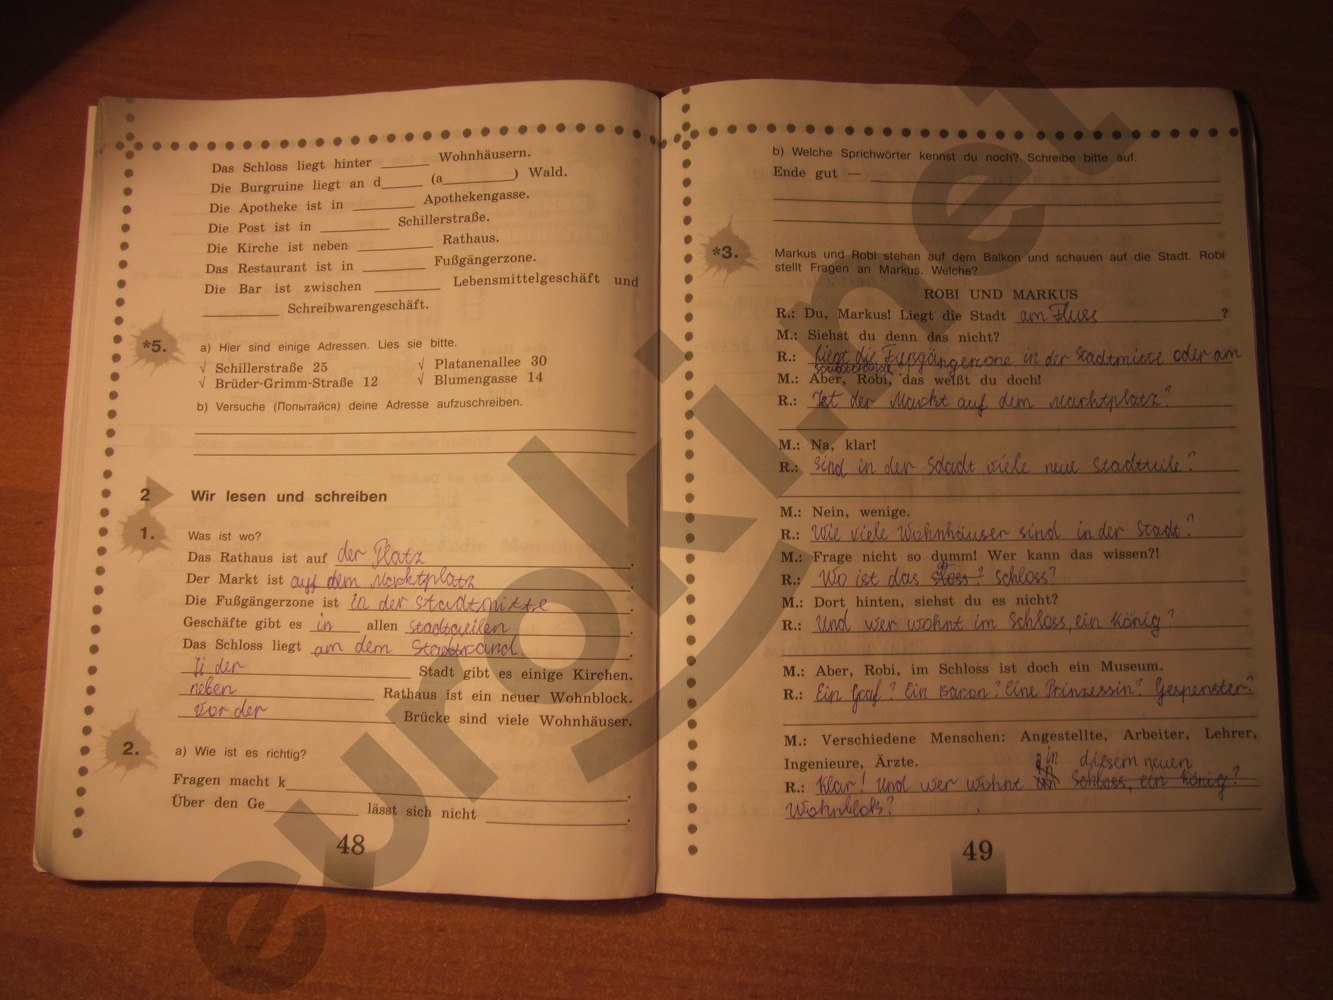 Das Schloss liegt hinter ______ Wohnhäusern.
Die Burgruine liegt an d_____ (a_________) Wald.
Die Apotheke ist in ________ Apothekengasse.
Die Post ist in _________ Schillerstraße.
Die Kirche ist neben __________ Rathaus.
Das Restaurant ist in ________ Fußgängerzone.
Die Bar ist zwischen ________ Lebensmittelgeschäft und
_________ Schreibwarengeschäft.
*5. a) Hier sind einige Adressen. Lies sie bitte.
√ Schillerstraße 25 √ Platanenallee 30
√ Brüder-Grimm-Straße 12 √ Blumengasse 14
b) Versuche (Попытайся) deine Adresse aufzuschreiben.
2 Wir lesen und schreiben
1. Was ist wo?
Das Rathaus ist auf der Platz.
Der Markt ist auf dem Marktplatz.
Die Fußgängerzone ist in der Stadtmitte.
Geschäfte gibt es in allen.
Das Schloss liegt am dem Stadtrand.
der Stadt gibt es einige Kirchen.
neben Rathaus ist ein neuer Wohnblock.
vor der Brücke sind viele Wohnhäuser.
2. a) Wie ist es richtig?
Fragen macht k______________________.
Über den Ge__________ lässt sich nicht ______________.
48
b) Welche Sprichwörter kennst du noch? Schreibe bitte auf.
Ende gut — ______________________
*3. Markus und Robi stehen auf dem Balkon und schauen auf die Stadt. Robi
stellt Fragen an Markus. Welche?
ROBI UND MARKUS
R.: Du, Markus! Liegt die Stadt am Fluss ?
M.: Siehst du denn das nicht?
R.: Liegt die Fussgängerzone in der Stadtmitte oder am
M.: Aber, Robi, das weißt du doch!
R.: Ist der Markt auf dem Marktplatz?
M.: Na, klar!
R.: Sind in der Stadt viele neue Stadtteile?
M.: Nein, wenige.
R.: Wie viele Wohnhäuser sind in der Stadt?
M.: Frage nicht so dumm! Wer kann das wissen?!
R.: Wo ist das Schloss?
M.: Dort hinten, siehst du es nicht?
R.: Und wer wohnt im Schloss, ein König?
M.: Aber, Robi, im Schloss ist doch ein Museum.
R.: Ein Graf? Ein Baron? Eine Prinzessin? Gespenster?
M.: Verschiedene Menschen: Angestellte, Arbeiter, Lehrer,
Ingenieure, Ärzte.
in diesem neuen
R.: Klar! Und wer wohnt im Schloss, ein König?
Wohnblock?
49
euroki.net